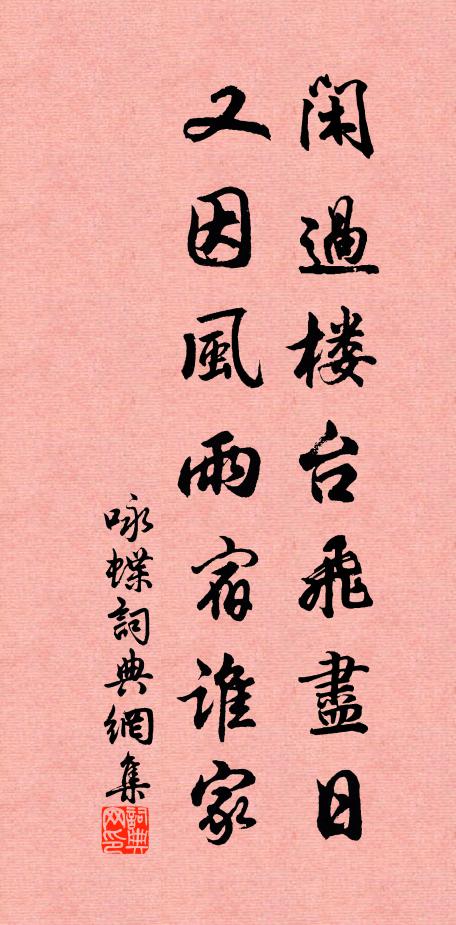 閑過楼台飛盡日
又因風雨宿誰家
咏蝶詞典網集
詞典网印